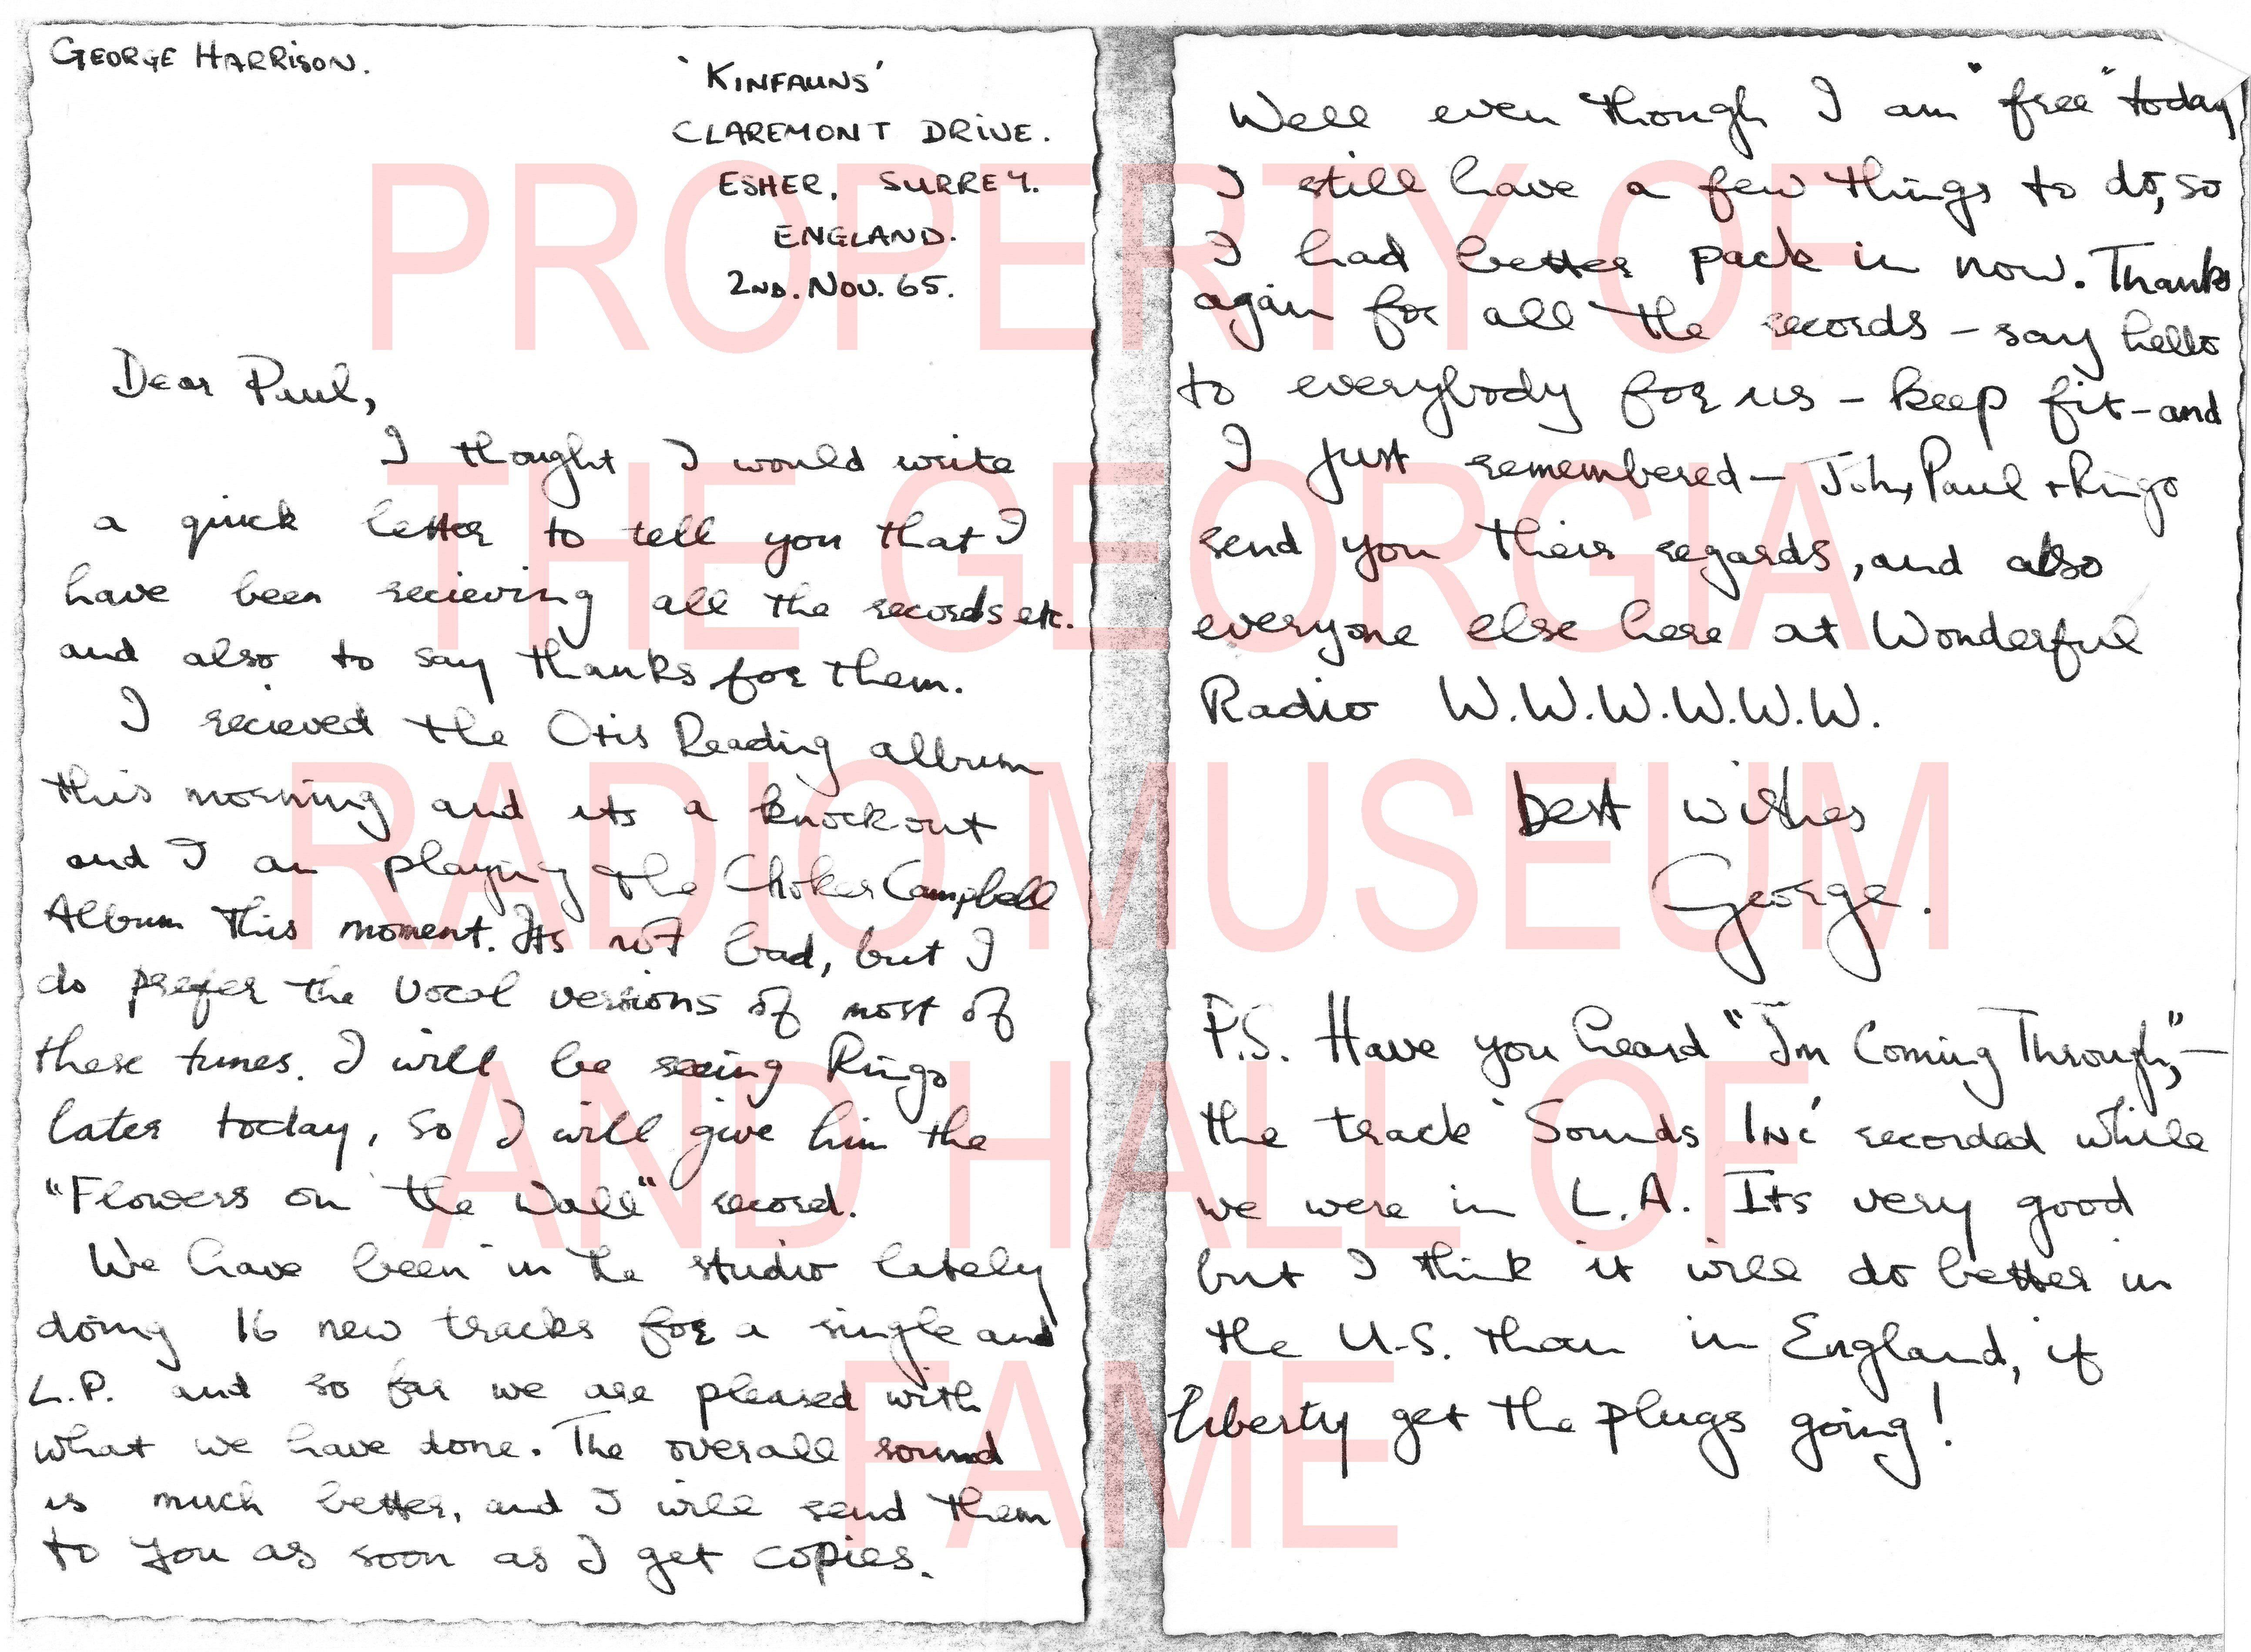 GEORGE HARRISON.
'KINFAUNS'
CLAREMONT DRIVE.
ESHER, SURREY.
ENGLAND.
2ND. NOV. 65.
Dear Paul,
I thought I would write
a quick letter to tell you that I
have been recieving all the records etc.
and also to say thanks for them.
I recieved the Otis Reading album
this morning and its a knockout
and I am playing the Choker Campbell
Album this moment. Its not bad, but I
do prefer the vocal versions of most of
these tunes. I will be seeing Ringo
later today, so I will give him the
"Flowers on the Wall" record.
We have been in the studio lately
doing 16 new tracks for a single and
L.P. and so far we are pleased with
what we have done. The overall sound
is much better, and I will send them
to you as soon as I get copies.
Well even though I am "free" today
I still have a few things to do, so
I had better pack in now. Thanks
again for all the records - say hello
to everybody for us - keep fit - and
I just remembered - John, Paul + Ringo
send you their regards, and also
everyone else here at Wonderful
Radio W.W.W.W.W.W.
best wishes
George.
P.S. Have you heard "Im Coming Through," -
the track 'Sounds Inc' recorded while
we were in L.A. Its very good
but I think it will do better in
the U.S. than in England, if
Liberty get the plugs going!
PROPERTY OF
THE GEORGIA
RADIO MUSEUM
AND HALL OF
FAME